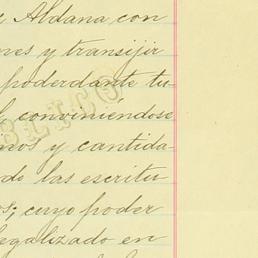 Aldana con
nes y transijir
poderdante tu-
conviniéndose
nos y cantida-
de las escritu
os; cuyo poder
legalizado en